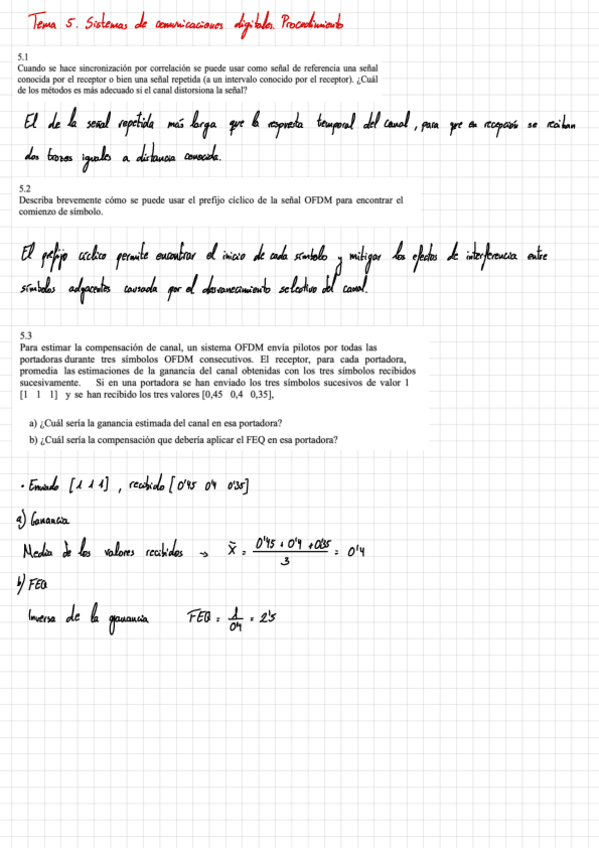 Tema 5. Sistemas de comunicaciones digitales. Procedimiento
5.1
Cuando se hace sincronización por correlación se puede usar como señal de referencia una señal
conocida por el receptor o bien una señal repetida (a un intervalo conocido por el receptor). ¿Cuál
de los métodos es más adecuado si el canal distorsiona la señal?
El de la señal repetida más larga que la respuesta temporal del canal, para que en recepción se reciban
dos trozos iguales a distancia conocida.
5.2
Describa brevemente cómo se puede usar el prefijo cíclico de la señal OFDM para encontrar el
comienzo de símbolo.
El prefijo cíclico permite encontrar el inicio de cada símbolo y mitigar los efectos de interferencia entre
símbolos adyacentes causada por el desvanecimiento selectivo del canal.
5.3
Para estimar la compensación de canal, un sistema OFDM envía pilotos por todas las
portadoras durante tres símbolos OFDM consecutivos. El receptor, para cada portadora,
promedia las estimaciones de la ganancia del canal obtenidas con los tres símbolos recibidos
sucesivamente. Si en una portadora se han enviado los tres símbolos sucesivos de valor 1
[1 1 1] y se han recibido los tres valores [0,45 0,4 0,35],
a) ¿Cuál sería la ganancia estimada del canal en esa portadora?
b) ¿Cuál sería la compensación que debería aplicar el FEQ en esa portadora?
· Enviado [1 1 1], recibido [0'45 0'4 0'35]
a) Ganancia
Media de los valores recibidos → x̄ = 0'45 + 0'4 + 0'35 / 3 = 0'4
b) FEQ
Inversa de la ganancia FEQ = 1 / 0'4 = 2'5